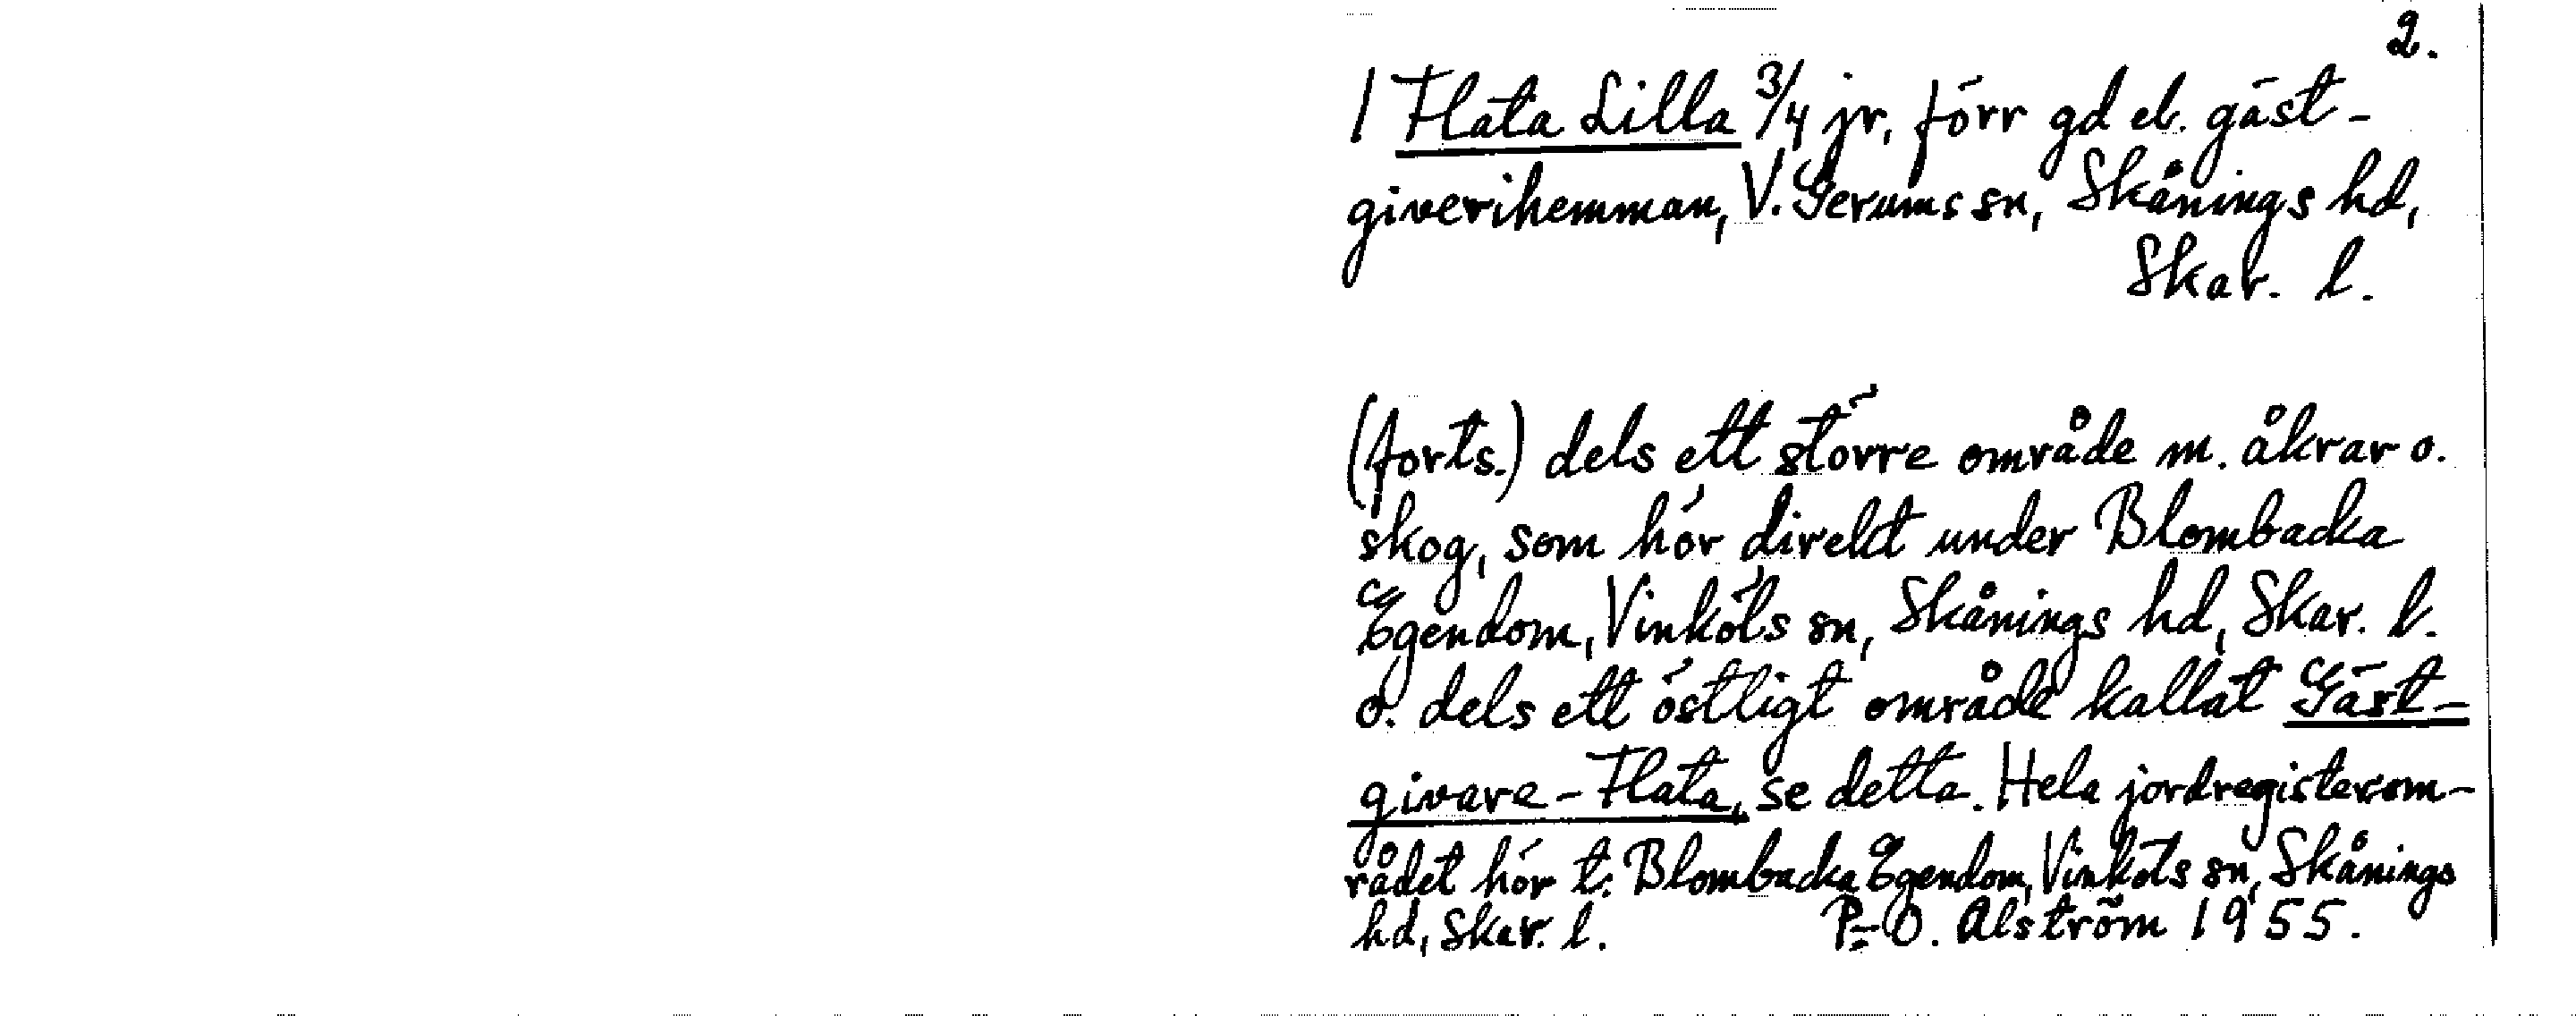 2.
1 Flata Lilla 3/4 jr, förr gd el. gäst-
giverihemman, V. Gerums sn, Skånings hd,
Skar. l.
(forts.) dels ett större område m. åkrar o.
skog, som hör direkt under Blombacka
Egendom, Vinköls sn, Skånings hd, Skar. l.
o. dels ett östligt område kallat Gäst-
givare-Flata, se detta. Hela jordregisterom-
rådet hör t. Blombacka Egendom, Vinköls sn, Skånings
hd, Skar. l. P-O. Alström 1955.